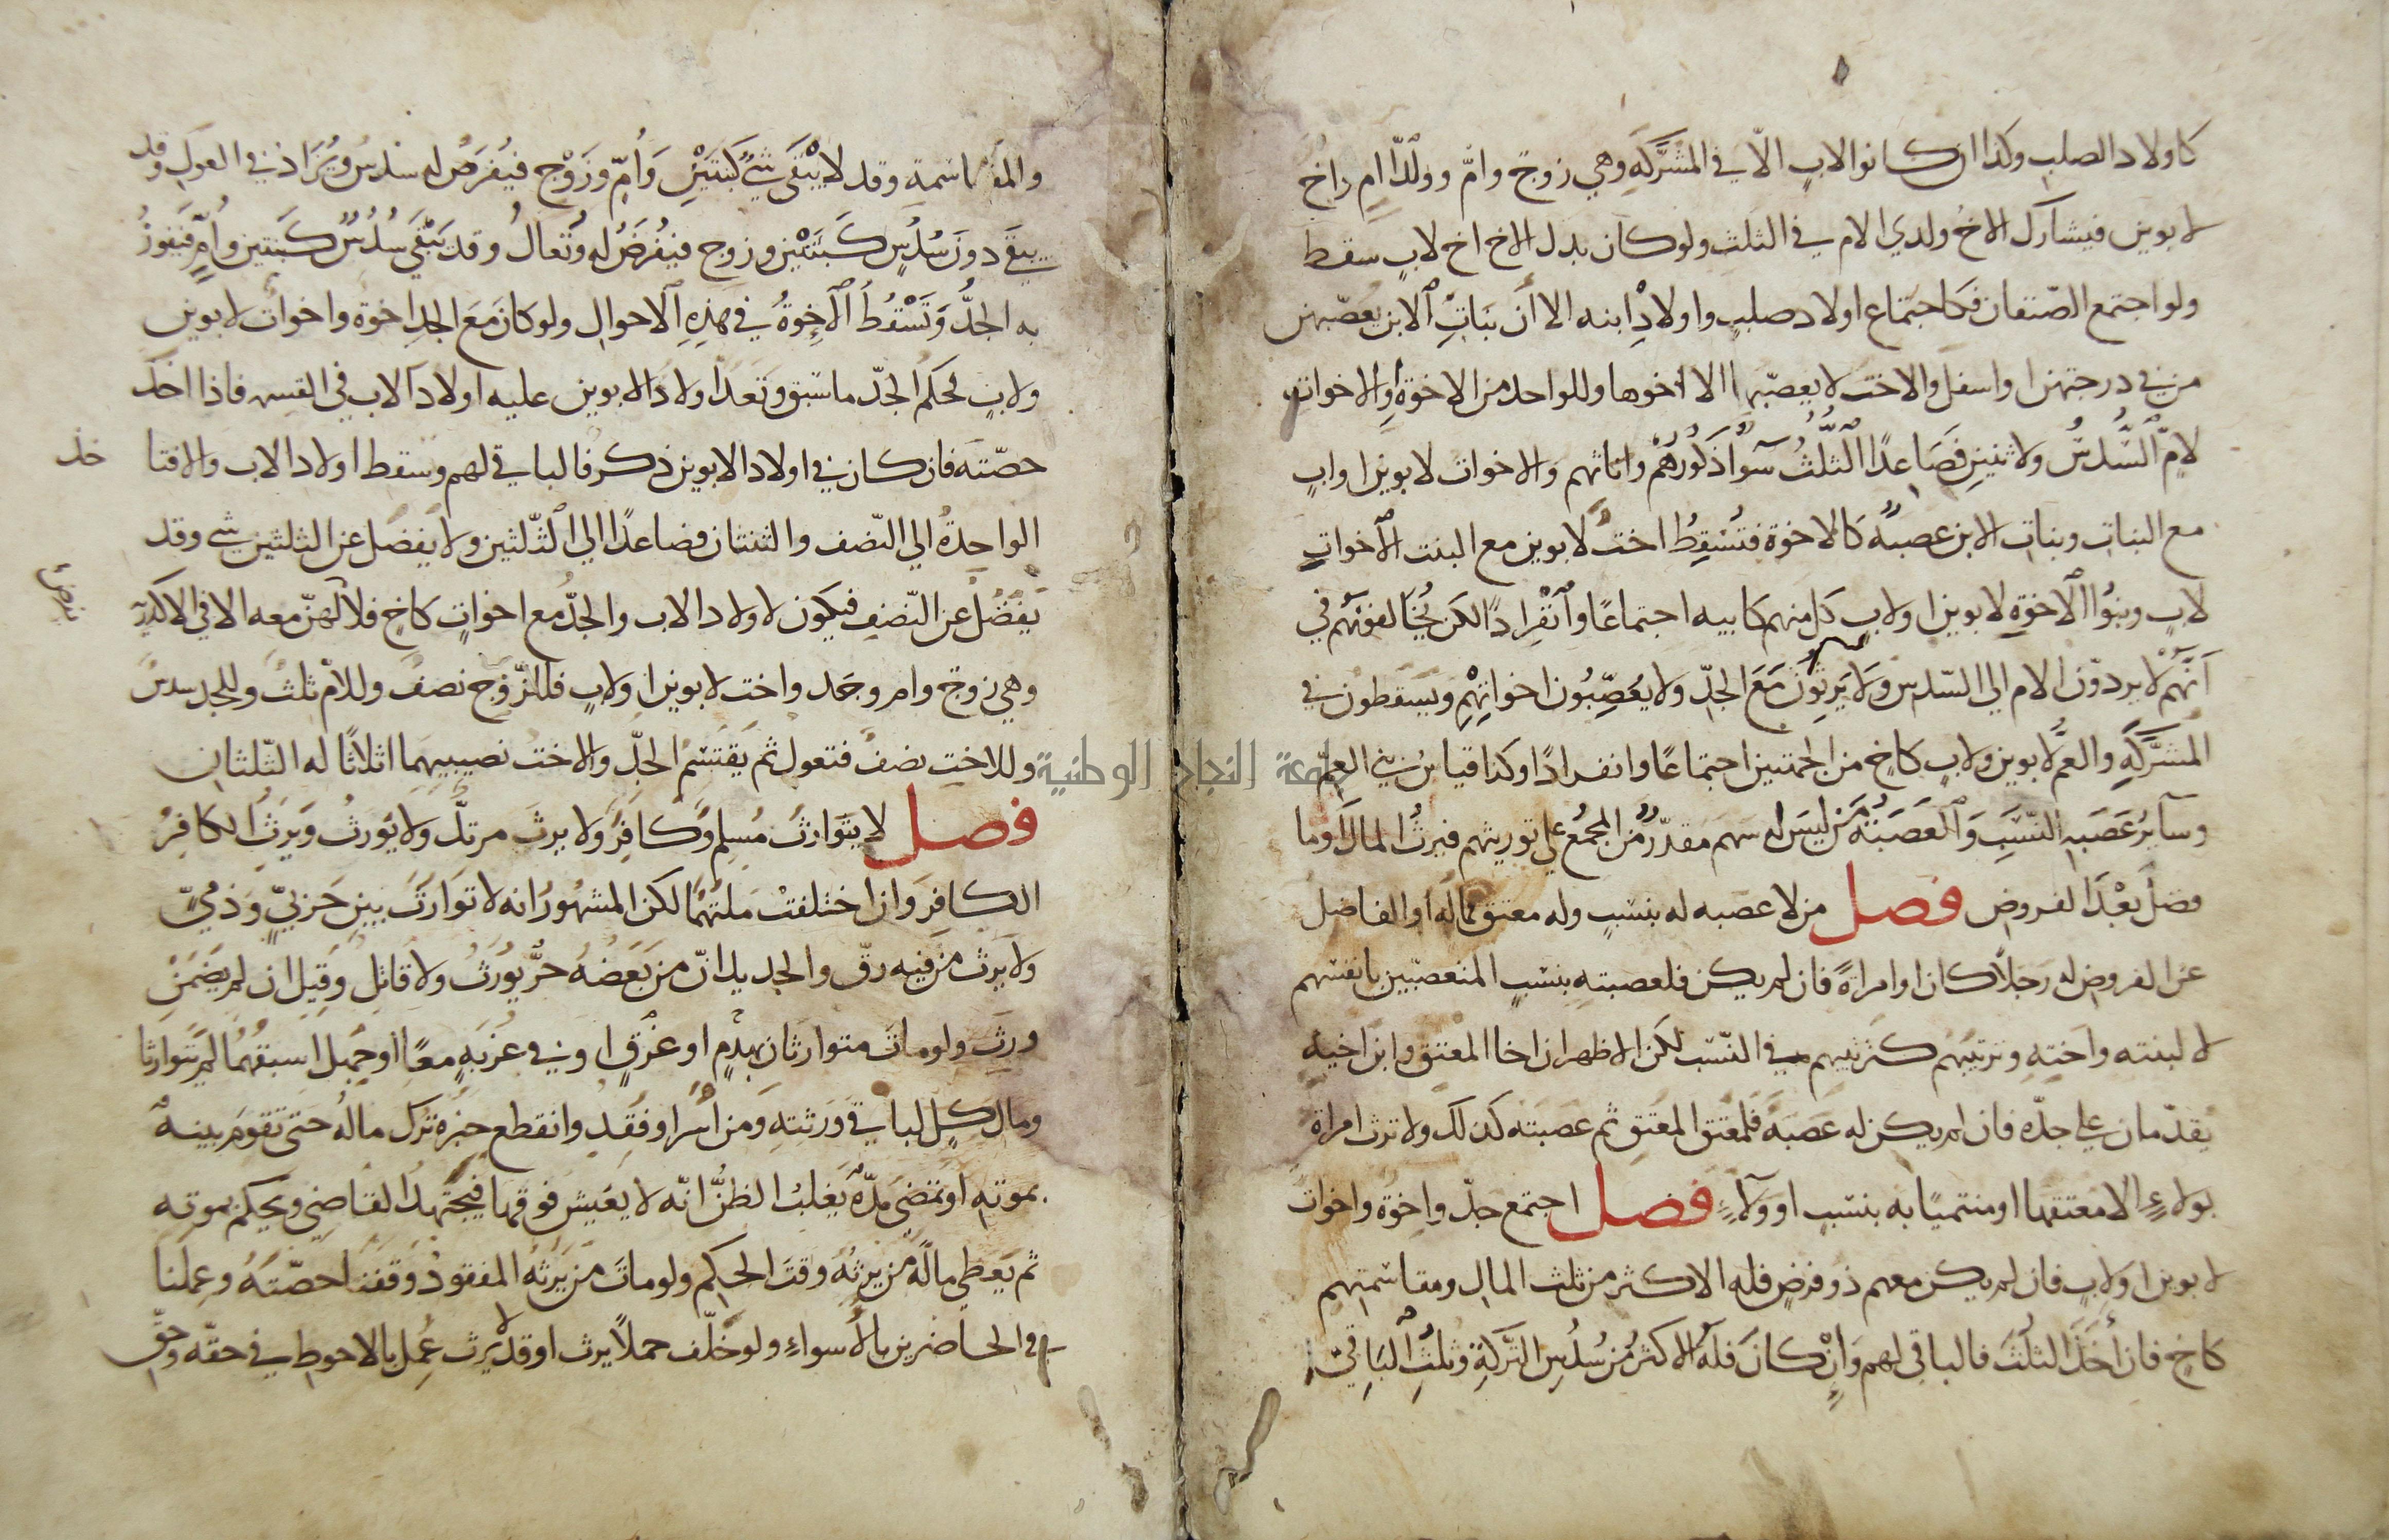 كاولاد الصلب وكذا ان كانوا لاب الا في المشركة وهي زوج وام وولدا ام واخ
لابوين فيشارك الاخ ولدي الام في الثلث ولو كان بدل الاخ اخ لاب سقط
ولو اجتمع الصنفان فكاجتماع اولاد صلب واولاد ابنه الا ان بنات الابن يعصبهن
من في درجتهن او اسفل والاخت لا يعصبها الا اخوها وللواحد من الاخوة او الاخوات
لام السدس ولاثنين فصاعدا الثلث سوا ذكورهم واناثهم والاخوات لابوين او اب
مع البنات وبنات الابن عصبة كالاخوة فتسقط اخت لابوين مع البنت الاخوات
لاب وبنوا الاخوة لابوين او لاب كل منهم كابيه اجتماعا وانفرادا لكن يخالفونهم في
انهم لا يردون الام الى السدس ولا يرثون مع الجد ولا يعصبون اخواتهم ويسقطون في
المشركة والعم لابوين ولاب كاخ من الجهتين اجتماعا وانفرادا وكذا قياس بني العم
وسائر عصبة النسب والعصبة من ليس له سهم مقدر من المجمع على توريثهم فيرث المال او ما
فضل بعد الفروض فصل من لا عصبه له بنسب وله معتق فماله او الفاضل
عن الفروض له رجلا كان او امراة فان لم يكن فلعصبته بنسب المتعصبين بانفسهم
لا لبنته واخته وترتيبهم كترتيبهم في النسب لكن الاظهر ان اخا المعتق وابن اخيه
يقدمان على جده فان لم يكن له عصبة فلمعتق المعتق ثم عصبته كذلك ولا ترث امراة
بولاء الا معتقها او منتميا به بنسب او ولاء فصل اجتمع جد واخوة واخوات
لابوين او لاب فان لم يكن معهم ذو فرض فله الاكثر من ثلث المال ومقاسمتهم
كاخ فان اخذ الثلث فالباقي لهم وان كان فله الاكثر من سدس التركة وثلث الباقي
والمقاسمة وقد لا يبقى شي كبنتين وام وزوج فيفرض له سدس ويزاد في العول وقد
يبقى دون سدس كبنتين وزوج فيفرض له وتعال وقد يبقى سدس كبنتين وام فيفوز
به الجد وتسقط الاخوة في هذه الاحوال ولو كان مع الجد اخوة واخوات لابوين
ولاب فحكم الجد ما سبق وتعد اولاد الابوين عليه اولاد الاب في القسمه فاذا اخذ
حصته فان كان في اولاد الابوين ذكر فالباقي لهم وسقط اولاد الاب والا فتا
خذ
الواحدة الى النصف والثنتان فصاعدا الى الثلثين ولا يفضل عن الثلثين شي وقد
يفضل عن النصف فيكون لاولاد الاب والجد مع اخوات كاخ فلا لهن معه الا في الاكدرية
وهي زوج وام وجد واخت لابوين او لاب فللزوج نصف وللام ثلث وللجد سدس
وللاخت نصف فتعول ثم يقتسم الجد والاخت نصيبيهما اثلاثا له الثلثان
فصل لا يتوارث مسلم وكافر ولا يرث مرتد ولا يورث ويرث الكافر
الكافر وان اختلفت ملتهما لكن المشهور انه لا توارث بين حربي وذمي
ولا يرث من فيه رق والجديد ان من بعضه حر يورث ولا قاتل وقيل ان لم يضمن
ورث ولو مات متوارثان بهدم او غرق او في غربة معا او جهل اسبقهما لم يتوارثا
ومال كل لباقي ورثته ومن اسر او فقد وانقطع خبره ترك ماله حتى تقوم بينة
بموته او تمضي مدة يغلب الظن انه لا يعيش فوقها فيجتهد القاضي ويحكم بموته
ثم يعطي ماله من يرثه وقت الحكم ولو مات من يرثه المفقود وقفنا حصته وعملنا
في الحاضرين بالاسواء ولو خلف حملا يرث او قد يرث عمل بالاحوط في حقه وحق
جامعة النجاح الوطنية